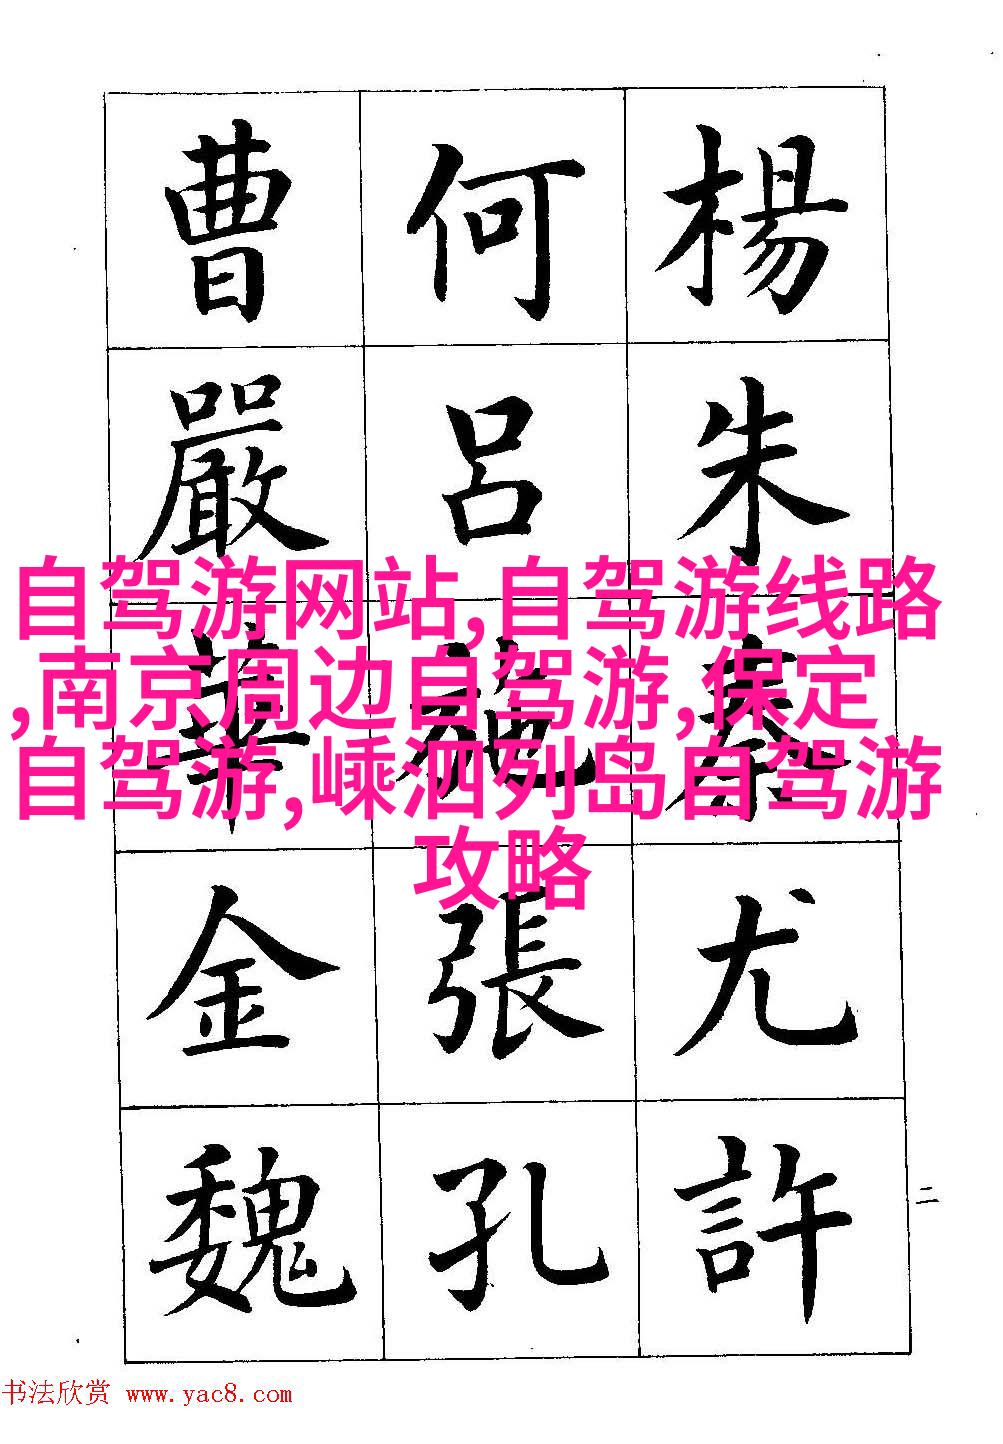 楊朱秦尤許
何呂施張孔
曹嚴華金魏
二
自驾游网站,自驾游线路
,南京周边自驾游,保定
自驾游,嵊泗列岛自驾游
攻略
书法欣赏 www.yac8.com